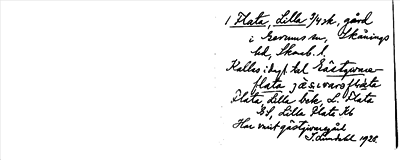 1 Flata, Lilla 3/4 sk, gård
i Ens sn, Skånings
hd, Skarab. l.
Kallas i dagl. tal Gästgivare-
flata jäsivaraflata
Flata, Lilla bok L. Flata
GS, Lilla Flata Kb
Har varit gästgivaregård
J. Lundahl 1926.